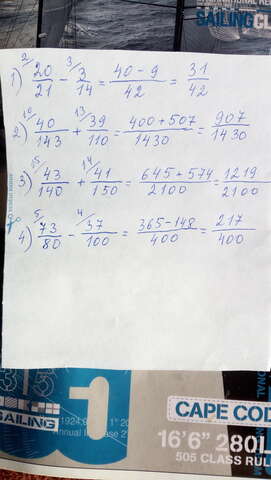 SAILING CL
1) ²/20/21 - ³/3/14 = 40 - 9/42 = 31/42
2) ¹⁰/40/143 + ¹³/39/110 = 400 + 507/1430 = 907/1430
3) ¹⁵/43/140 + ¹⁴/41/150 = 645 + 574/2100 = 1219/2100
4) ⁵/73/80 - ⁴/37/100 = 365 - 148/400 = 217/400
SAILING
1
1924
Annual
CAPE COD
16'6" 280L
505 CLASS RUL